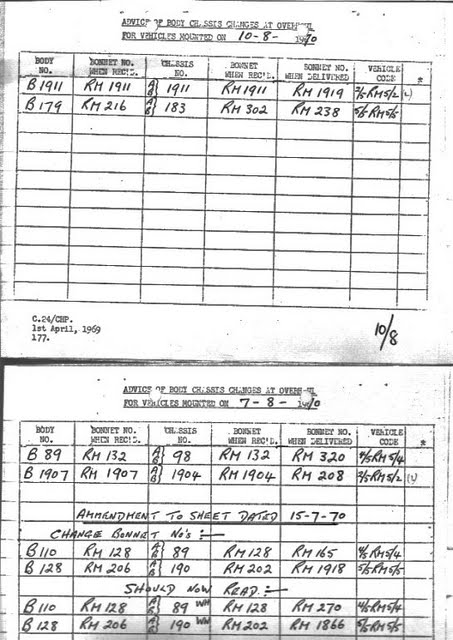 ADVICE OF BODY CHASSIS CHANGES AT OVERHAUL
FOR VEHICLES MOUNTED ON 10-8- 1970
BODY NO. BONNET NO. WHEN REC'D. CHASSIS NO. BONNET WHEN REC'D. BONNET NO. WHEN DELIVERED VEHICLE CODE *
B1911 RM 1911 A/B} 1911 RM1911 RM 1919 2/5 RM5/2 (L)
B179 RM 216 A/B} 183 RM 302 RM 238 5/5 RM5/5
C.24/CHP.
1st April, 1969
177.
10/8
ADVICE OF BODY CHASSIS CHANGES AT OVERHAUL
FOR VEHICLES MOUNTED ON 7-8- 1970
BODY NO. BONNET NO. WHEN REC'D. CHASSIS NO. BONNET WHEN REC'D. BONNET NO. WHEN DELIVERED VEHICLE CODE *
B 89 RM 132 A/B} 98 RM 132 RM 320 4/5 RM5/4
B1907 RM 1907 A/B} 1904 RM1904 RM 208 2/5 RM5/2
AMMENDMENT TO SHEET DATED 15-7-70
CHANGE BONNET No's :-
B110 RM 128 A/B} 89 RM128 RM165 4/5 RM5/4
B128 RM 206 A/B} 190 RM 202 RM 1918 5/5 RM5/5
SHOULD NOW READ :-
B110 RM 128 A/B} 89 WW RM 128 RM 270 4/5 RM5/4
B128 RM 206 A/B} 190 WW RM202 RM 1866 5/5 RM5/5